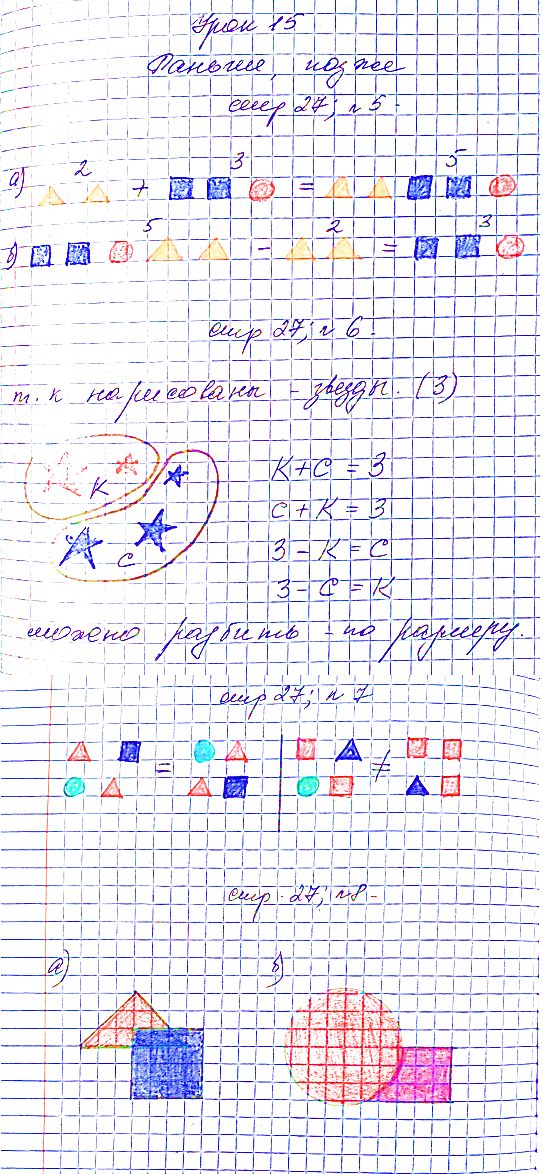 Урок 15
Раньше, позже
стр 27; n 5.
а) 2 + 3 = 5
б) 5 - 2 = 3
стр 27; n 6.
т. к нарисованы - звезды. (3)
К
С
К+С = 3
С + К = 3
3 - К = С
3 - С = К
можно разбить - по размеру.
стр 27; n 7
= ≠
стр. 27; n8.
а) б)